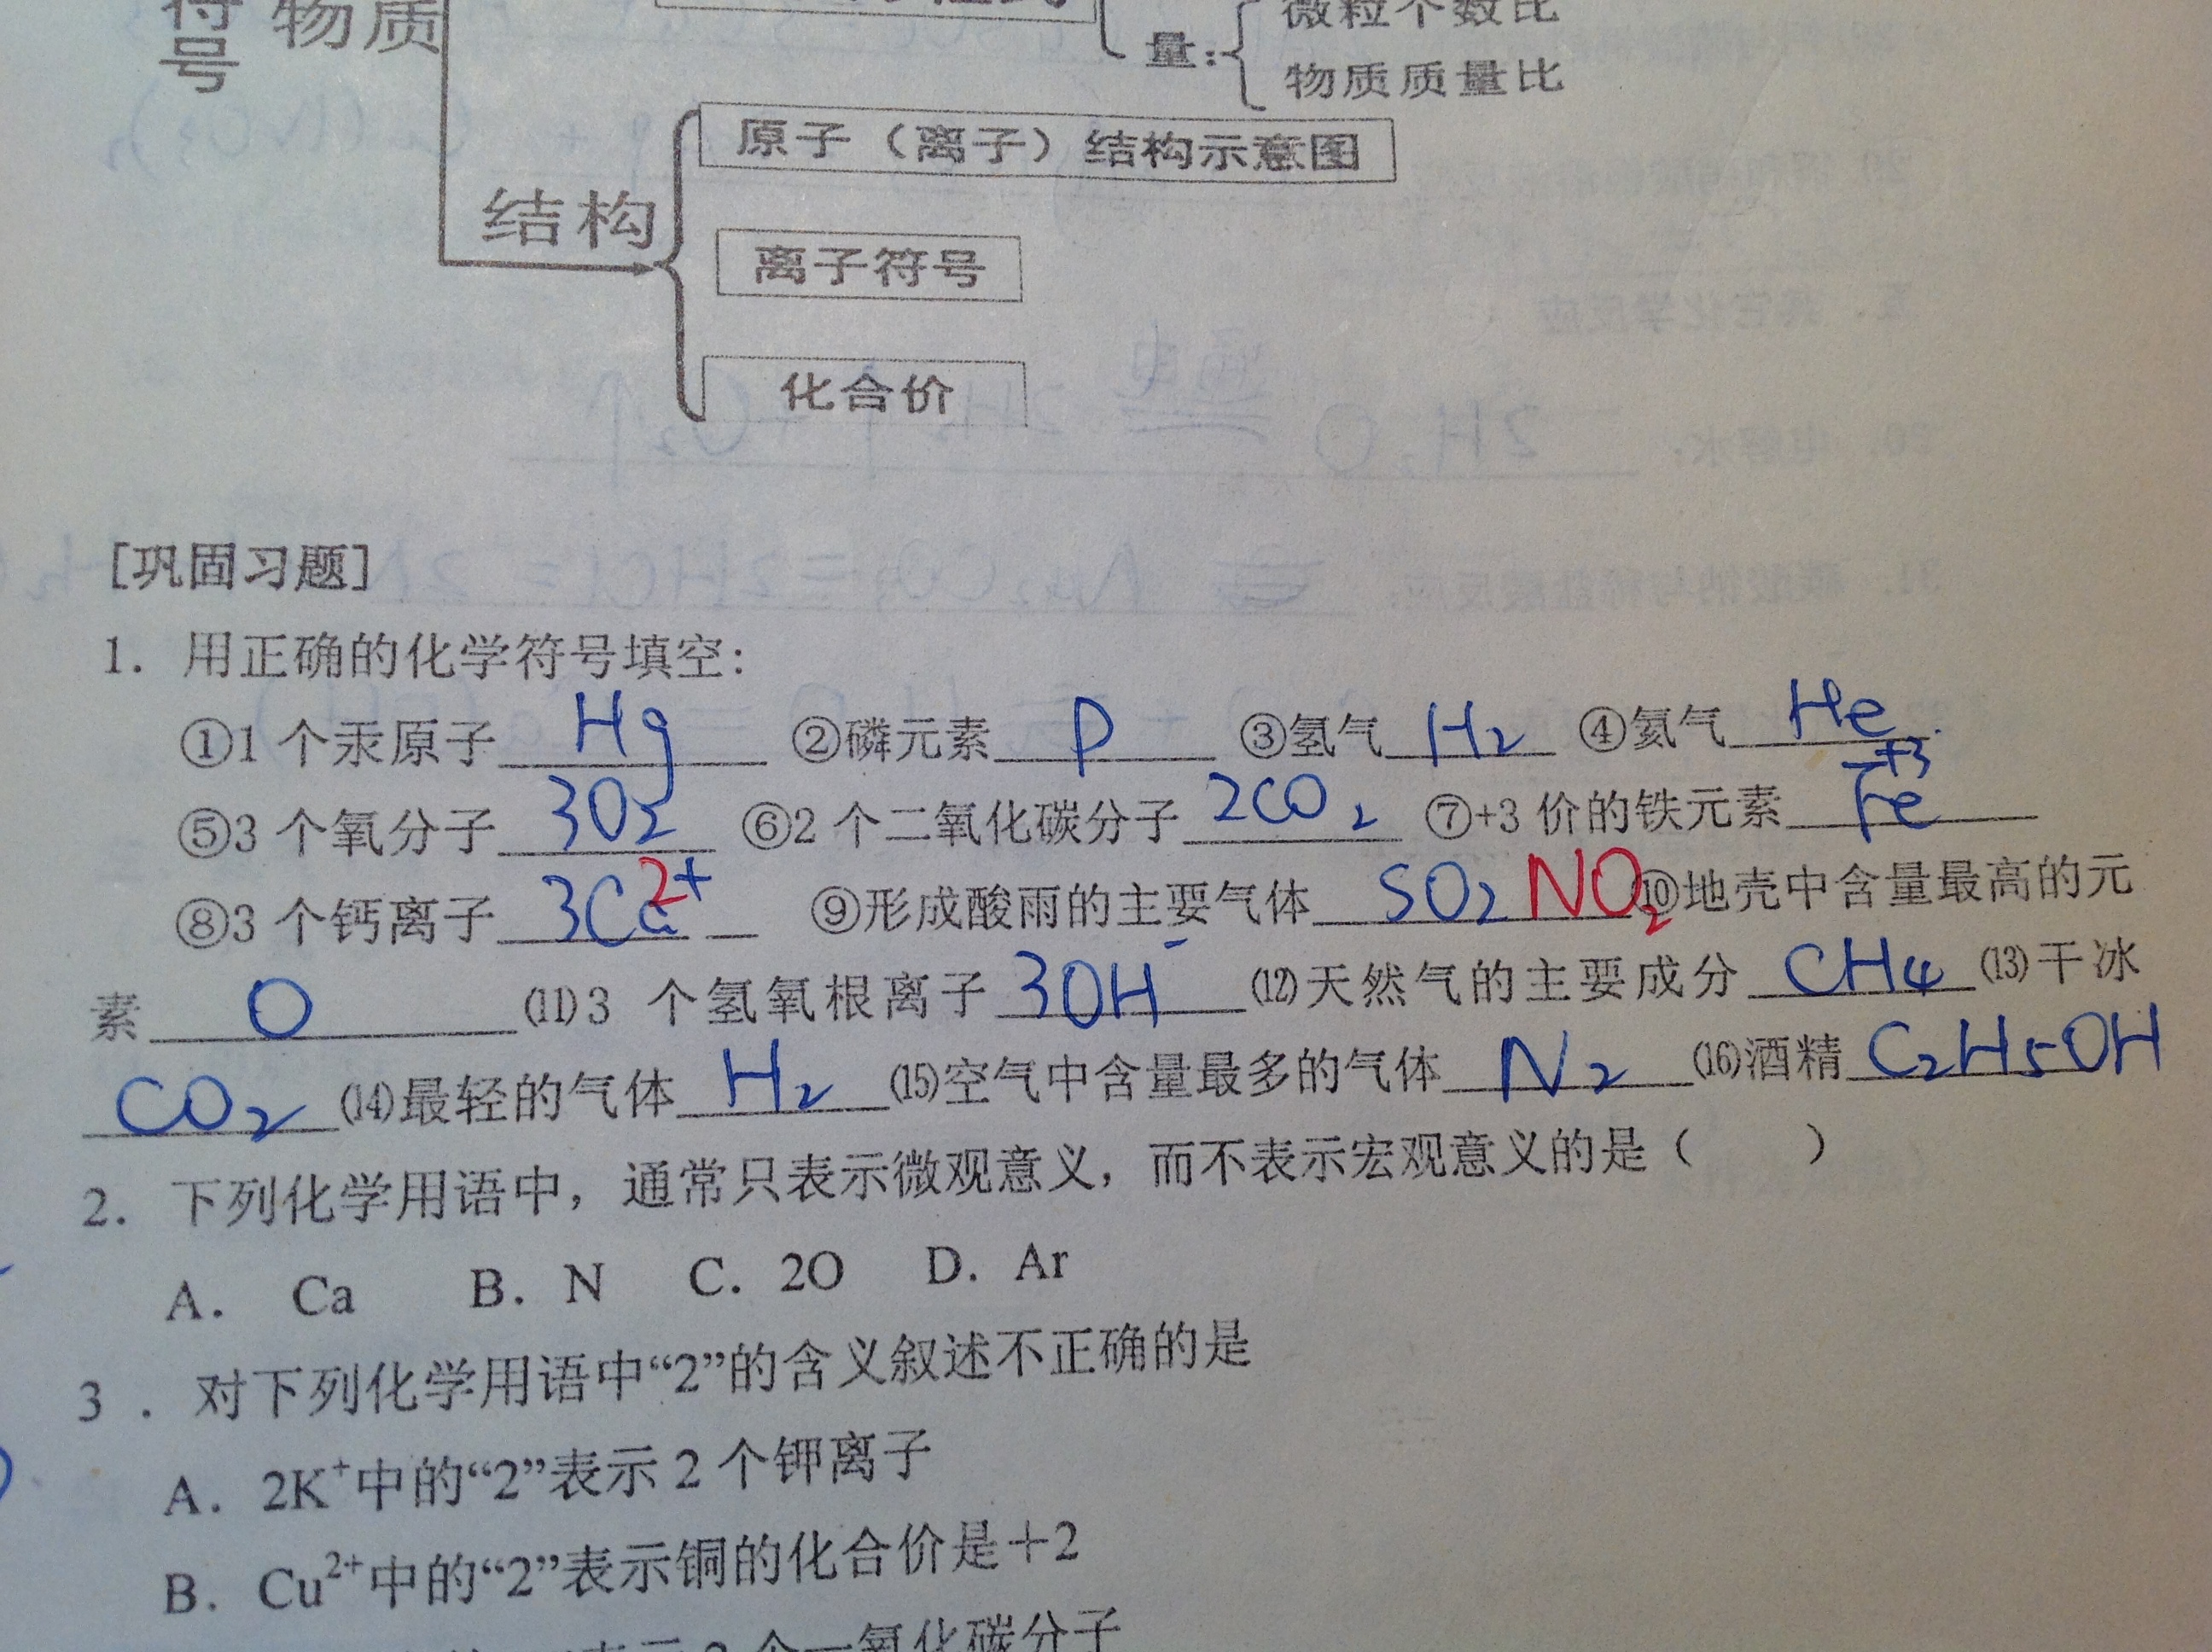 符号 物质
量: 微粒个数比
物质质量比
结构
原子（离子）结构示意图
离子符号
化合价
[巩固习题]
1. 用正确的化学符号填空:
①1 个汞原子 Hg ②磷元素 P ③氢气 H₂ ④氦气 He
⑤3 个氧分子 3O₂ ⑥2 个二氧化碳分子 2CO₂ ⑦+3 价的铁元素 Fe +3
⑧3 个钙离子 3Ca²⁺ ⑨形成酸雨的主要气体 SO₂ NO₂ ⑩地壳中含量最高的元
素 O ⑾3 个氢氧根离子 3OH⁻ ⑿天然气的主要成分 CH₄ ⒀干冰
CO₂ ⒁最轻的气体 H₂ ⒂空气中含量最多的气体 N₂ ⒃酒精 C₂H₅OH
2. 下列化学用语中，通常只表示微观意义，而不表示宏观意义的是（ ）
A. Ca B. N C. 2O D. Ar
3 . 对下列化学用语中“2”的含义叙述不正确的是
A. 2K⁺中的“2”表示 2 个钾离子
B. Cu²⁺中的“2”表示铜的化合价是＋2
2 个一氧化碳分子